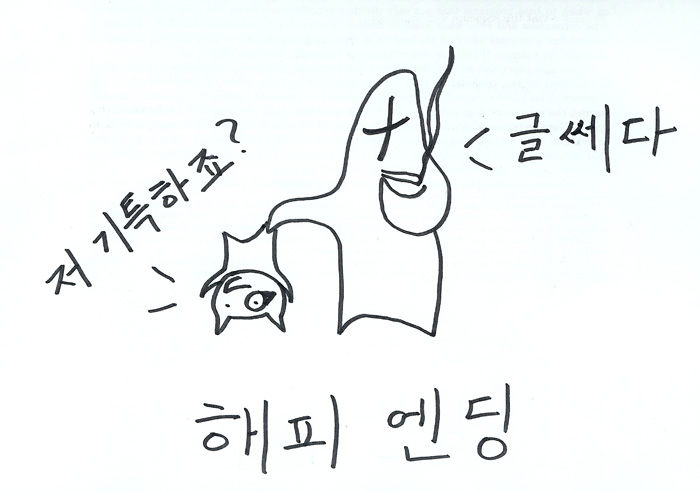 저 기특하죠?
글쎄다
해피 엔딩